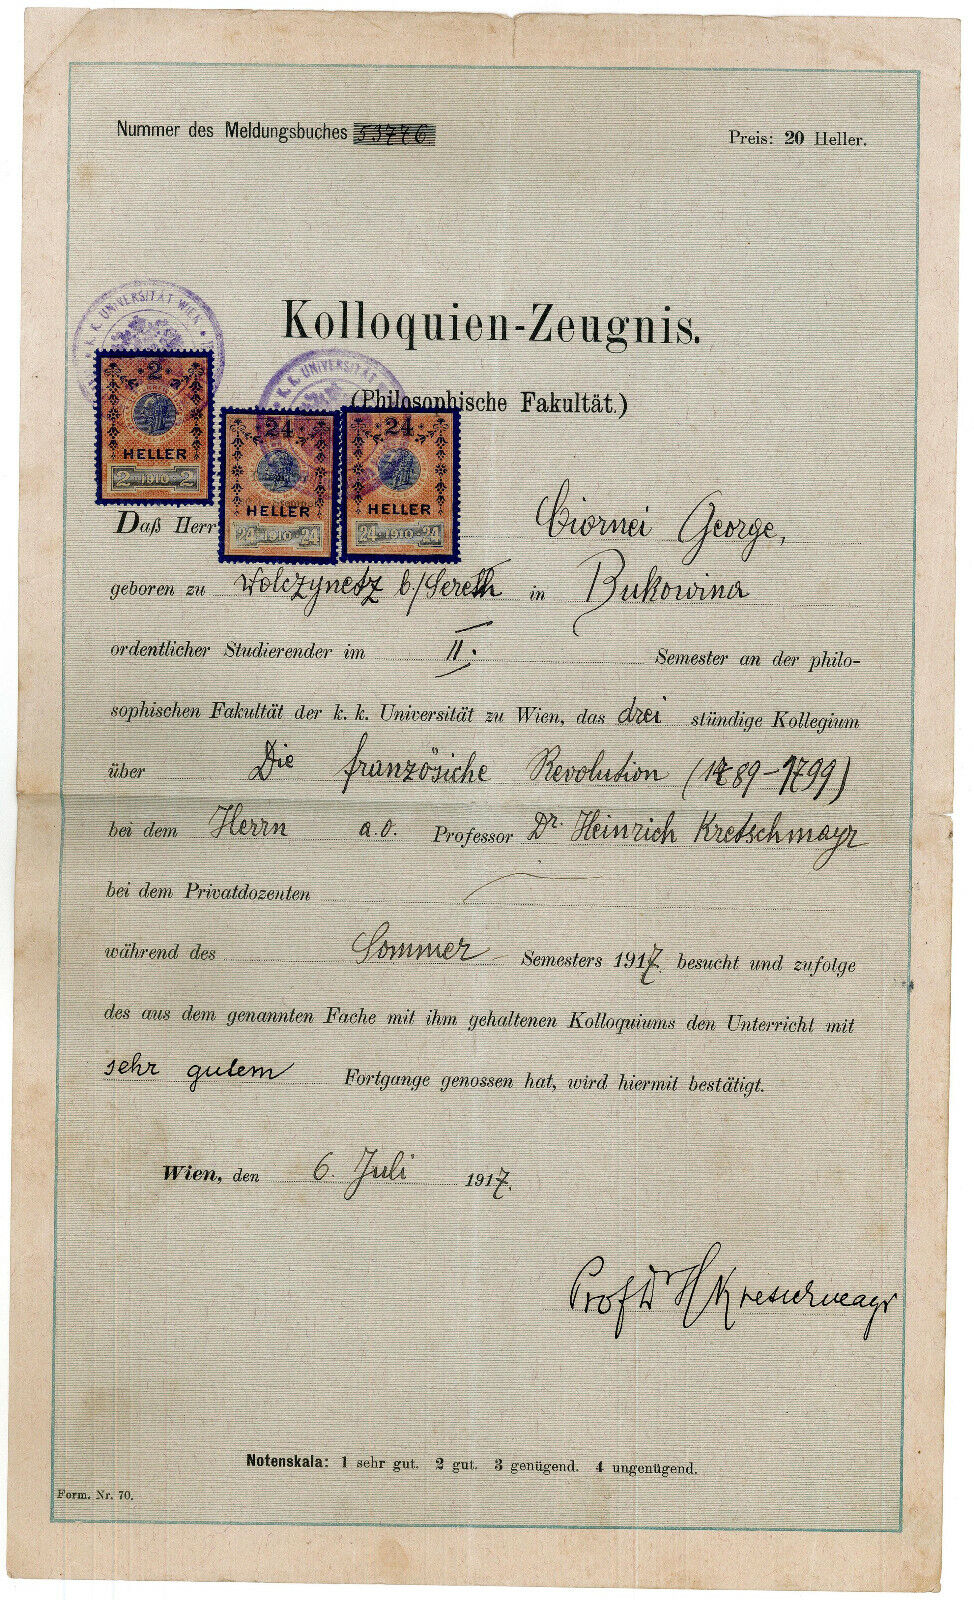 Nummer des Meldungsbuches 53776
Preis: 20 Heller.
Kolloquien-Zeugnis.
(Philosophische Fakultät.)
K. K. UNIVERSITÄT WIEN
K. K. UNIVERSITÄT
2
HELLER
2 1910 2
24
HELLER
24 1910 24
24
HELLER
24 1910 24
Daß Herr Ciornei George,
geboren zu Wolczynetz b/Sereth in Bukowina
ordentlicher Studierender im II. Semester an der philo-
sophischen Fakultät der k. k. Universität zu Wien, das drei stündige Kollegium
über Die französiche Revolution (1789-1799)
bei dem Herrn a.o. Professor Dr. Heinrich Kretschmayr
bei dem Privatdozenten
während des Sommer Semesters 1917. besucht und zufolge
des aus dem genannten Fache mit ihm gehaltenen Kolloquiums den Unterricht mit
sehr gutem Fortgange genossen hat, wird hiermit bestätigt.
Wien, den 6. Juli 1917.
Prof Dr H Kretschmayr
Notenskala: 1 sehr gut. 2 gut. 3 genügend. 4 ungenügend.
Form. Nr. 70.